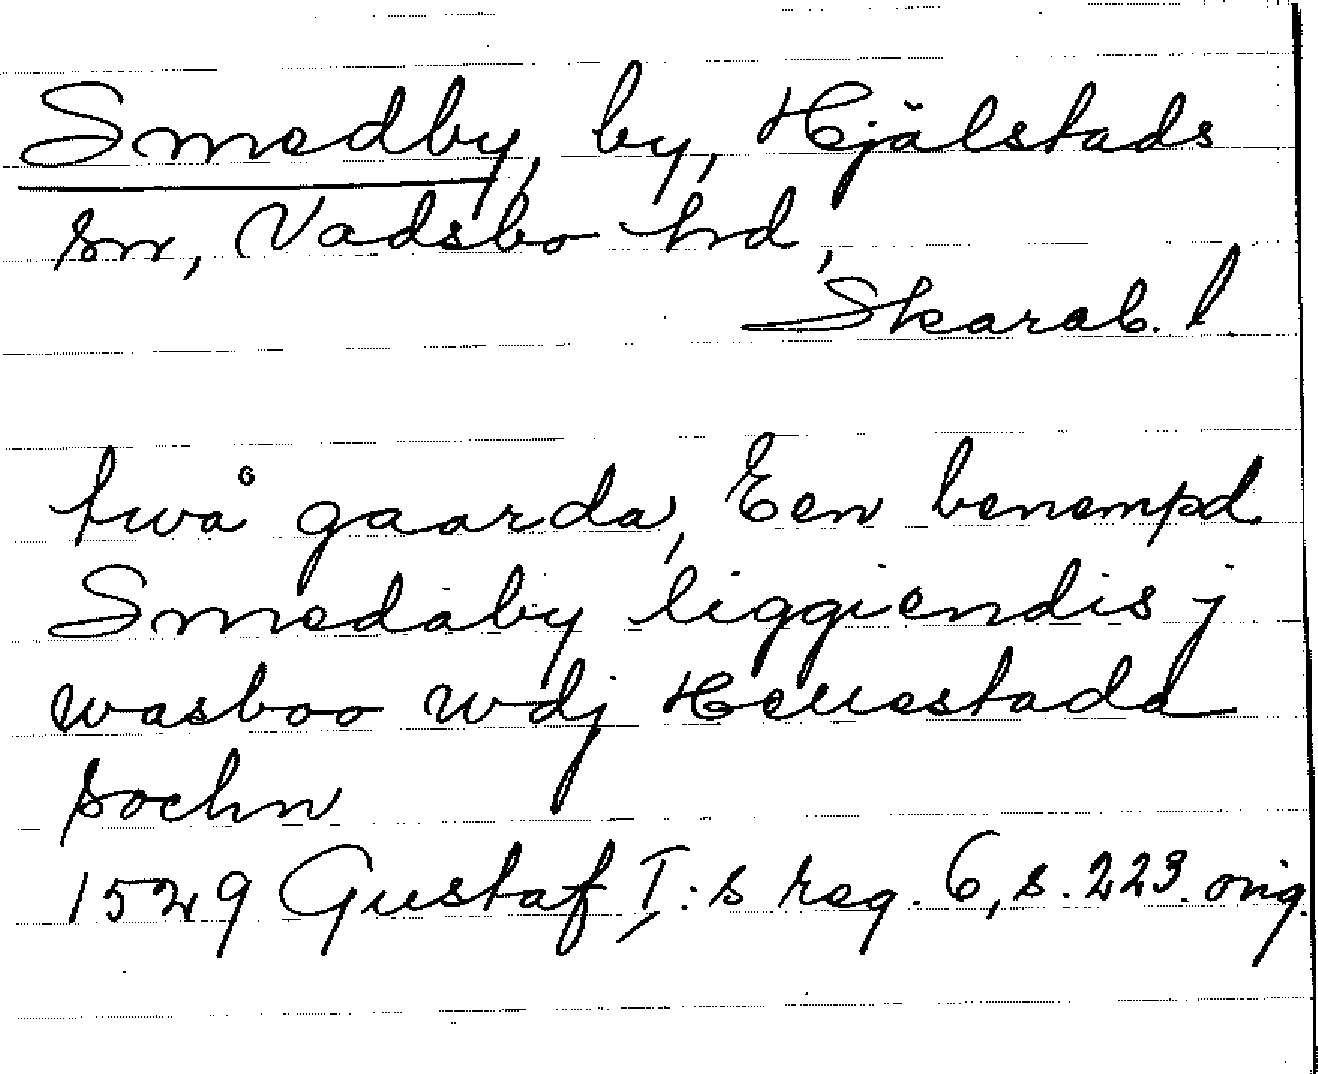 Smedby, by, Hjälstads
sn, Vadsbo hd,
Skarab. l.
twå gaarda, Een benempd
Smedaby liggiendis j
wasboo wdj Hellestada
sochn
1529 Gustaf I:s reg. 6, s. 223. orig.